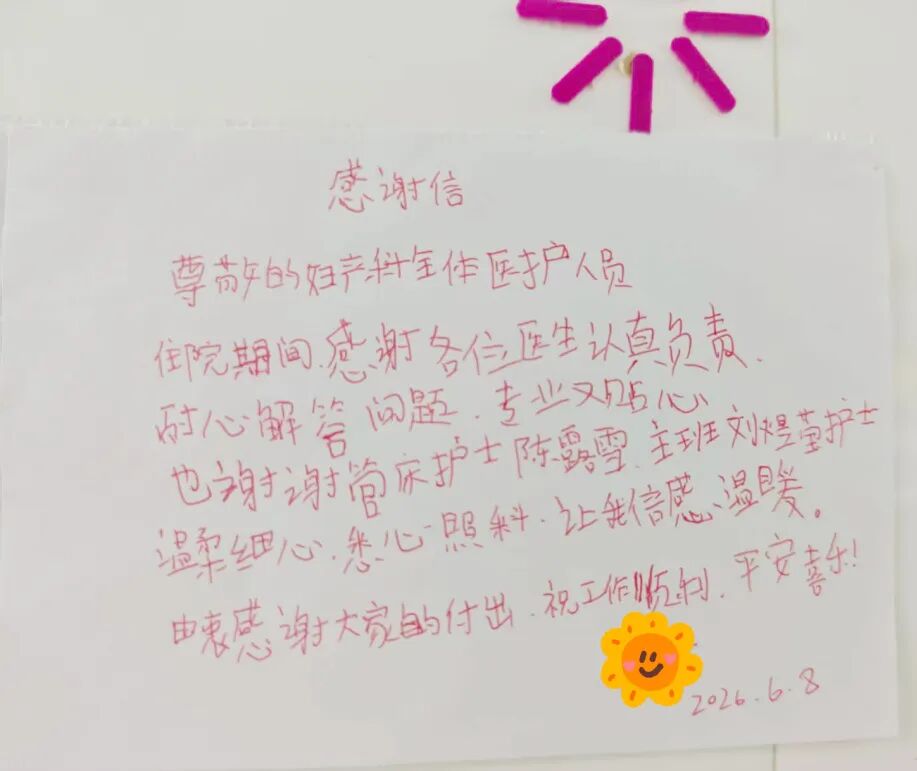 感谢信
尊敬的妇产科全体医护人员
住院期间.感谢各位医生认真负责.
耐心解答问题.专业又贴心
也谢谢管床护士陈露雪.主班刘煜莹护士
温柔细心.悉心照料.让我倍感温暖。
由衷感谢大家的付出.祝工作顺利.平安喜乐!
2026.6.8